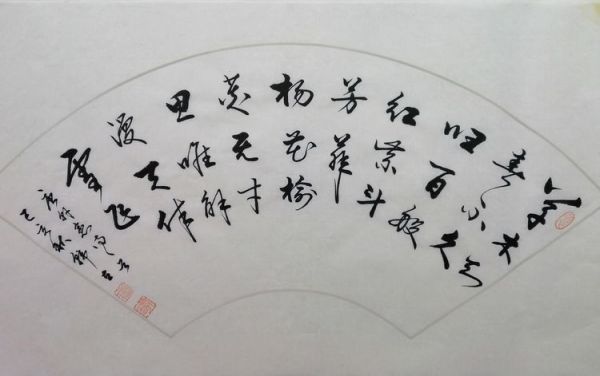 草木知
春不久
归百般
红紫斗
芳菲
杨花榆
荚无才
思唯解
漫天作
雪飞
唐韩愈
己亥秋